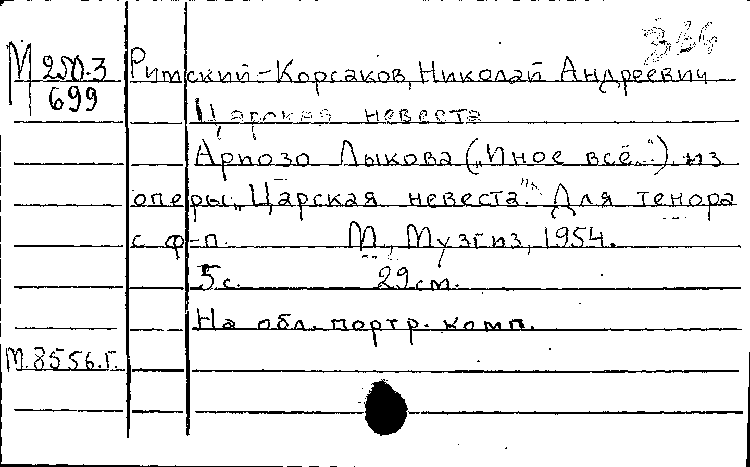 336
М 250.3 Римский-Корсаков, Николай Андреевич
699
Царская невеста
Ариозо Лыкова („Иное всё...") из
оперы „Царская невеста". Для тенора
с ф-п. М., Музгиз, 1954.
5 с. 29 см.
На обл. портр. комп.
М.8556.Г.